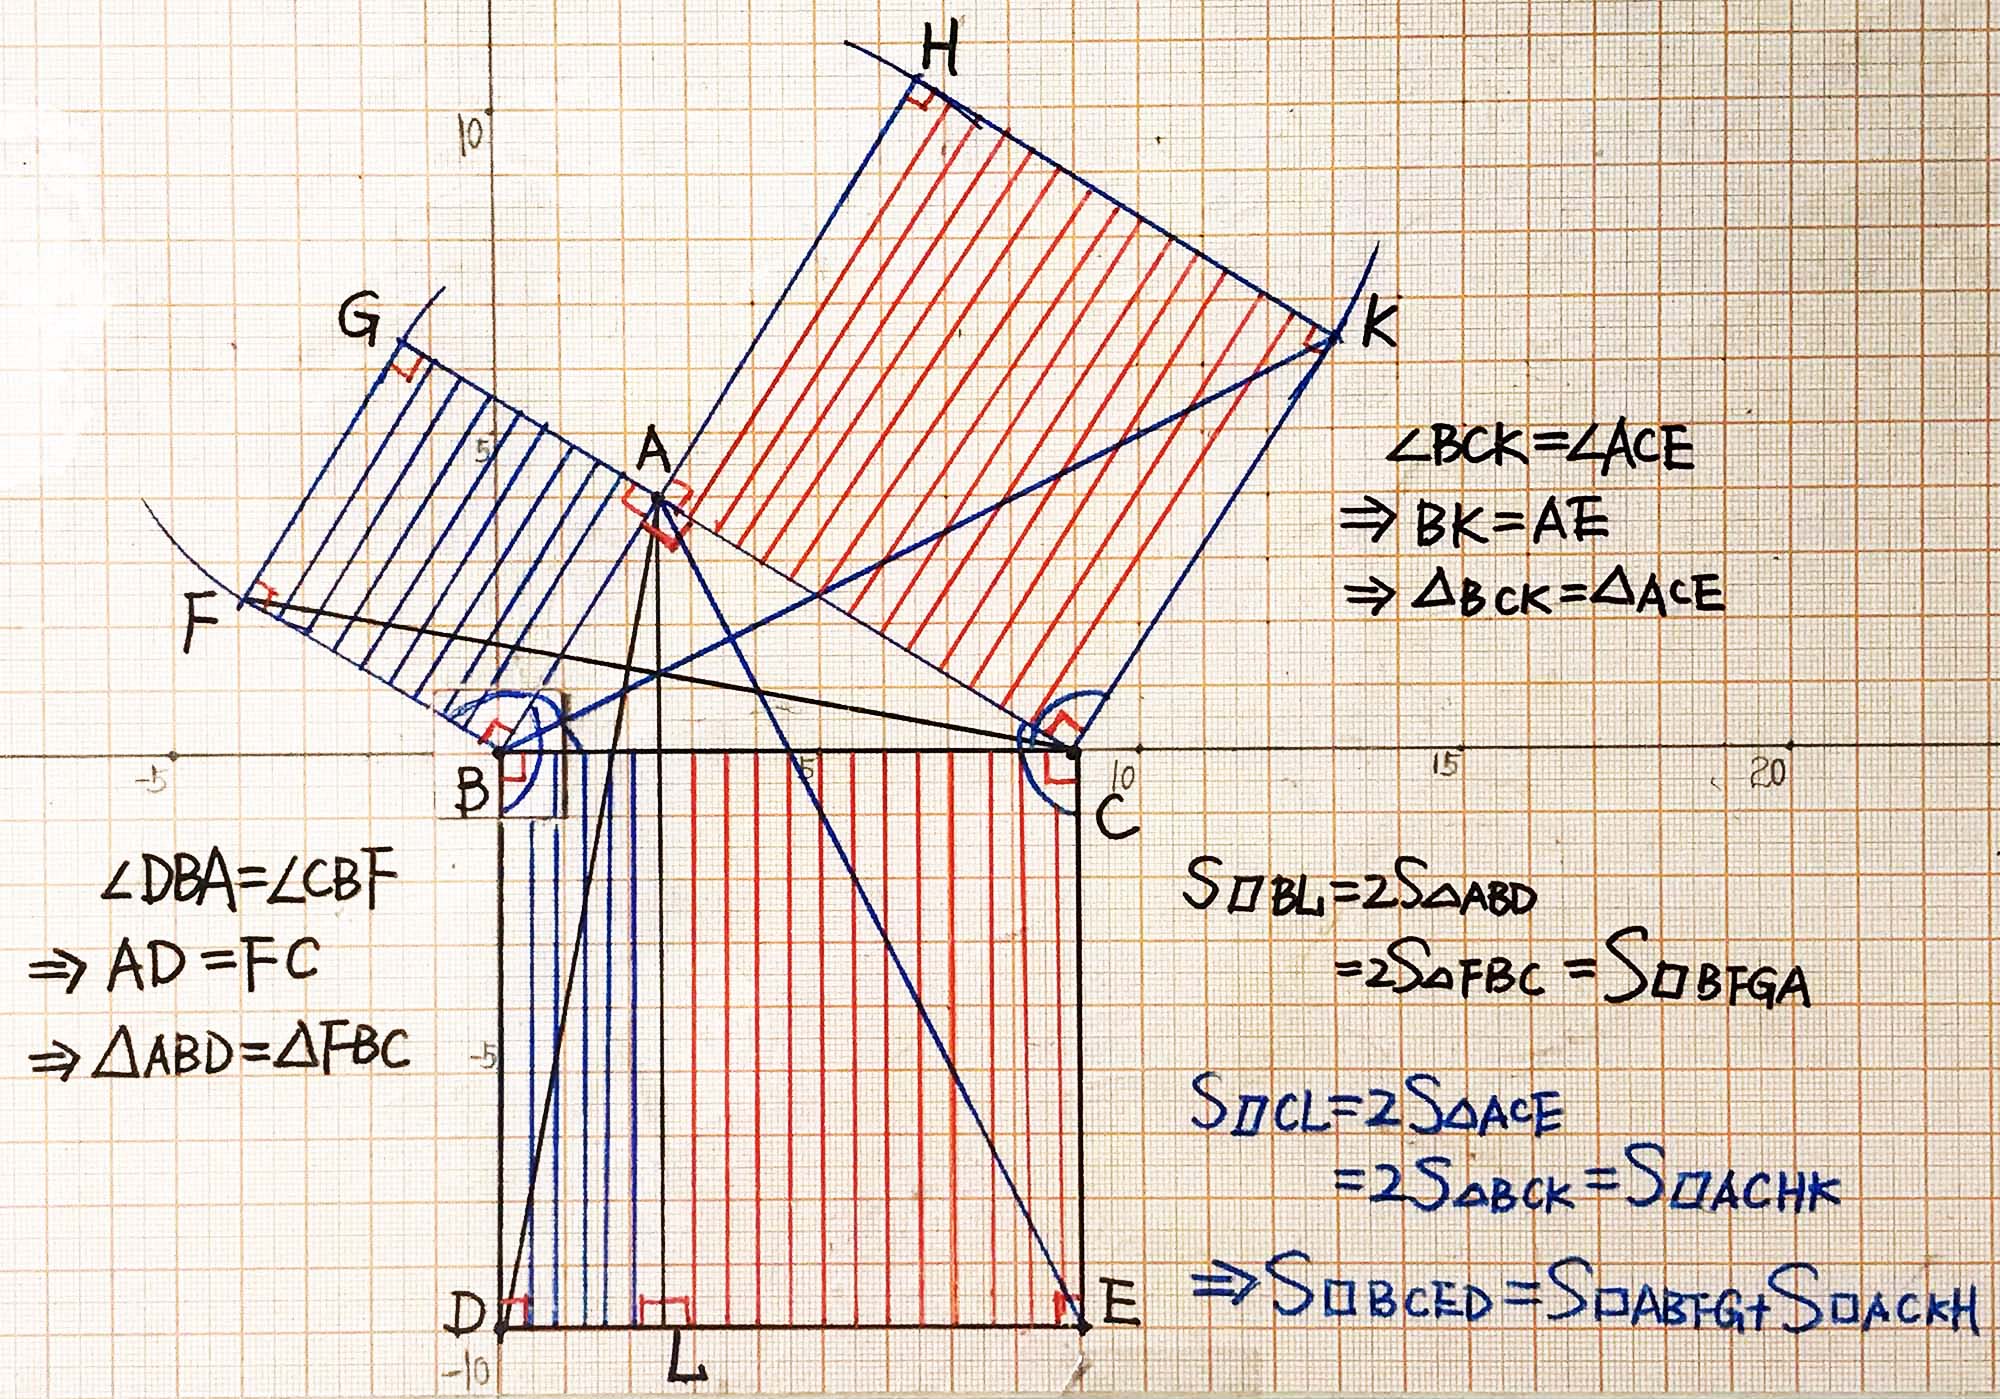 H
10
G
K
A
5
∠BCK=∠ACE
⇒ BK=AE
⇒ △BCK=△ACE
F
-5
B
5
10
15
20
C
∠DBA=∠CBF
⇒ AD=FC
⇒ △ABD=△FBC
S□BL=2S△ABD
=2S△FBC=S□BFGA
-5
S□CL=2S△ACE
=2S△BCK=S□ACHK
⇒S□BCED=S□ABFG+S□ACKH
D
E
L
-10